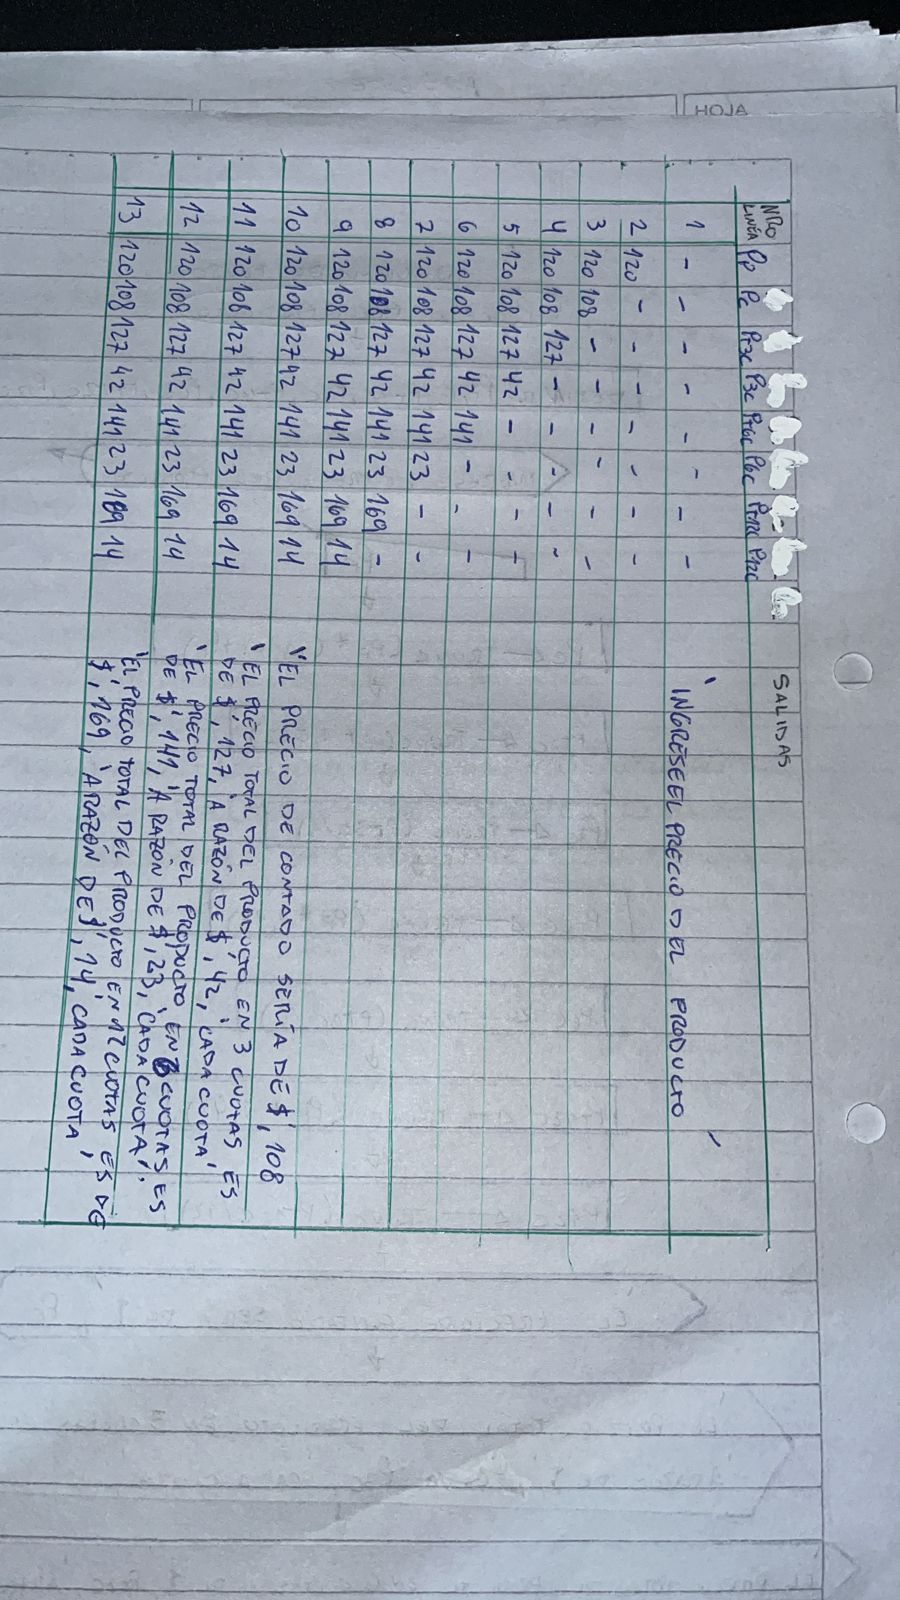 HOJA
NRO LINEA PP PC PT3C P3C PT6C P6C PT12C P12C SALIDAS
1 - - - - - - - - "INGRESE EL PRECIO DEL PRODUCTO"
2 120 - - - - - - -
3 120 108 - - - - - -
4 120 108 127 - - - - -
5 120 108 127 42 - - - -
6 120 108 127 42 141 - - -
7 120 108 127 42 141 23 - -
8 120 108 127 42 141 23 169 -
9 120 108 127 42 141 23 169 14
10 120 108 127 42 141 23 169 14 "EL PRECIO DE CONTADO SERÍA DE $", 108
11 120 108 127 42 141 23 169 14 "EL PRECIO TOTAL DEL PRODUCTO EN 3 CUOTAS ES
DE $", 127, "A RAZÓN DE $", 42, "CADA CUOTA"
12 120 108 127 42 141 23 169 14 "EL PRECIO TOTAL DEL PRODUCTO EN 6 CUOTAS ES
DE $", 141, "A RAZÓN DE $", 23, "CADA CUOTA".
13 120 108 127 42 141 23 169 14 "EL PRECIO TOTAL DEL PRODUCTO EN 12 CUOTAS ES DE
$", 169, "A RAZÓN DE $", 14, "CADA CUOTA"